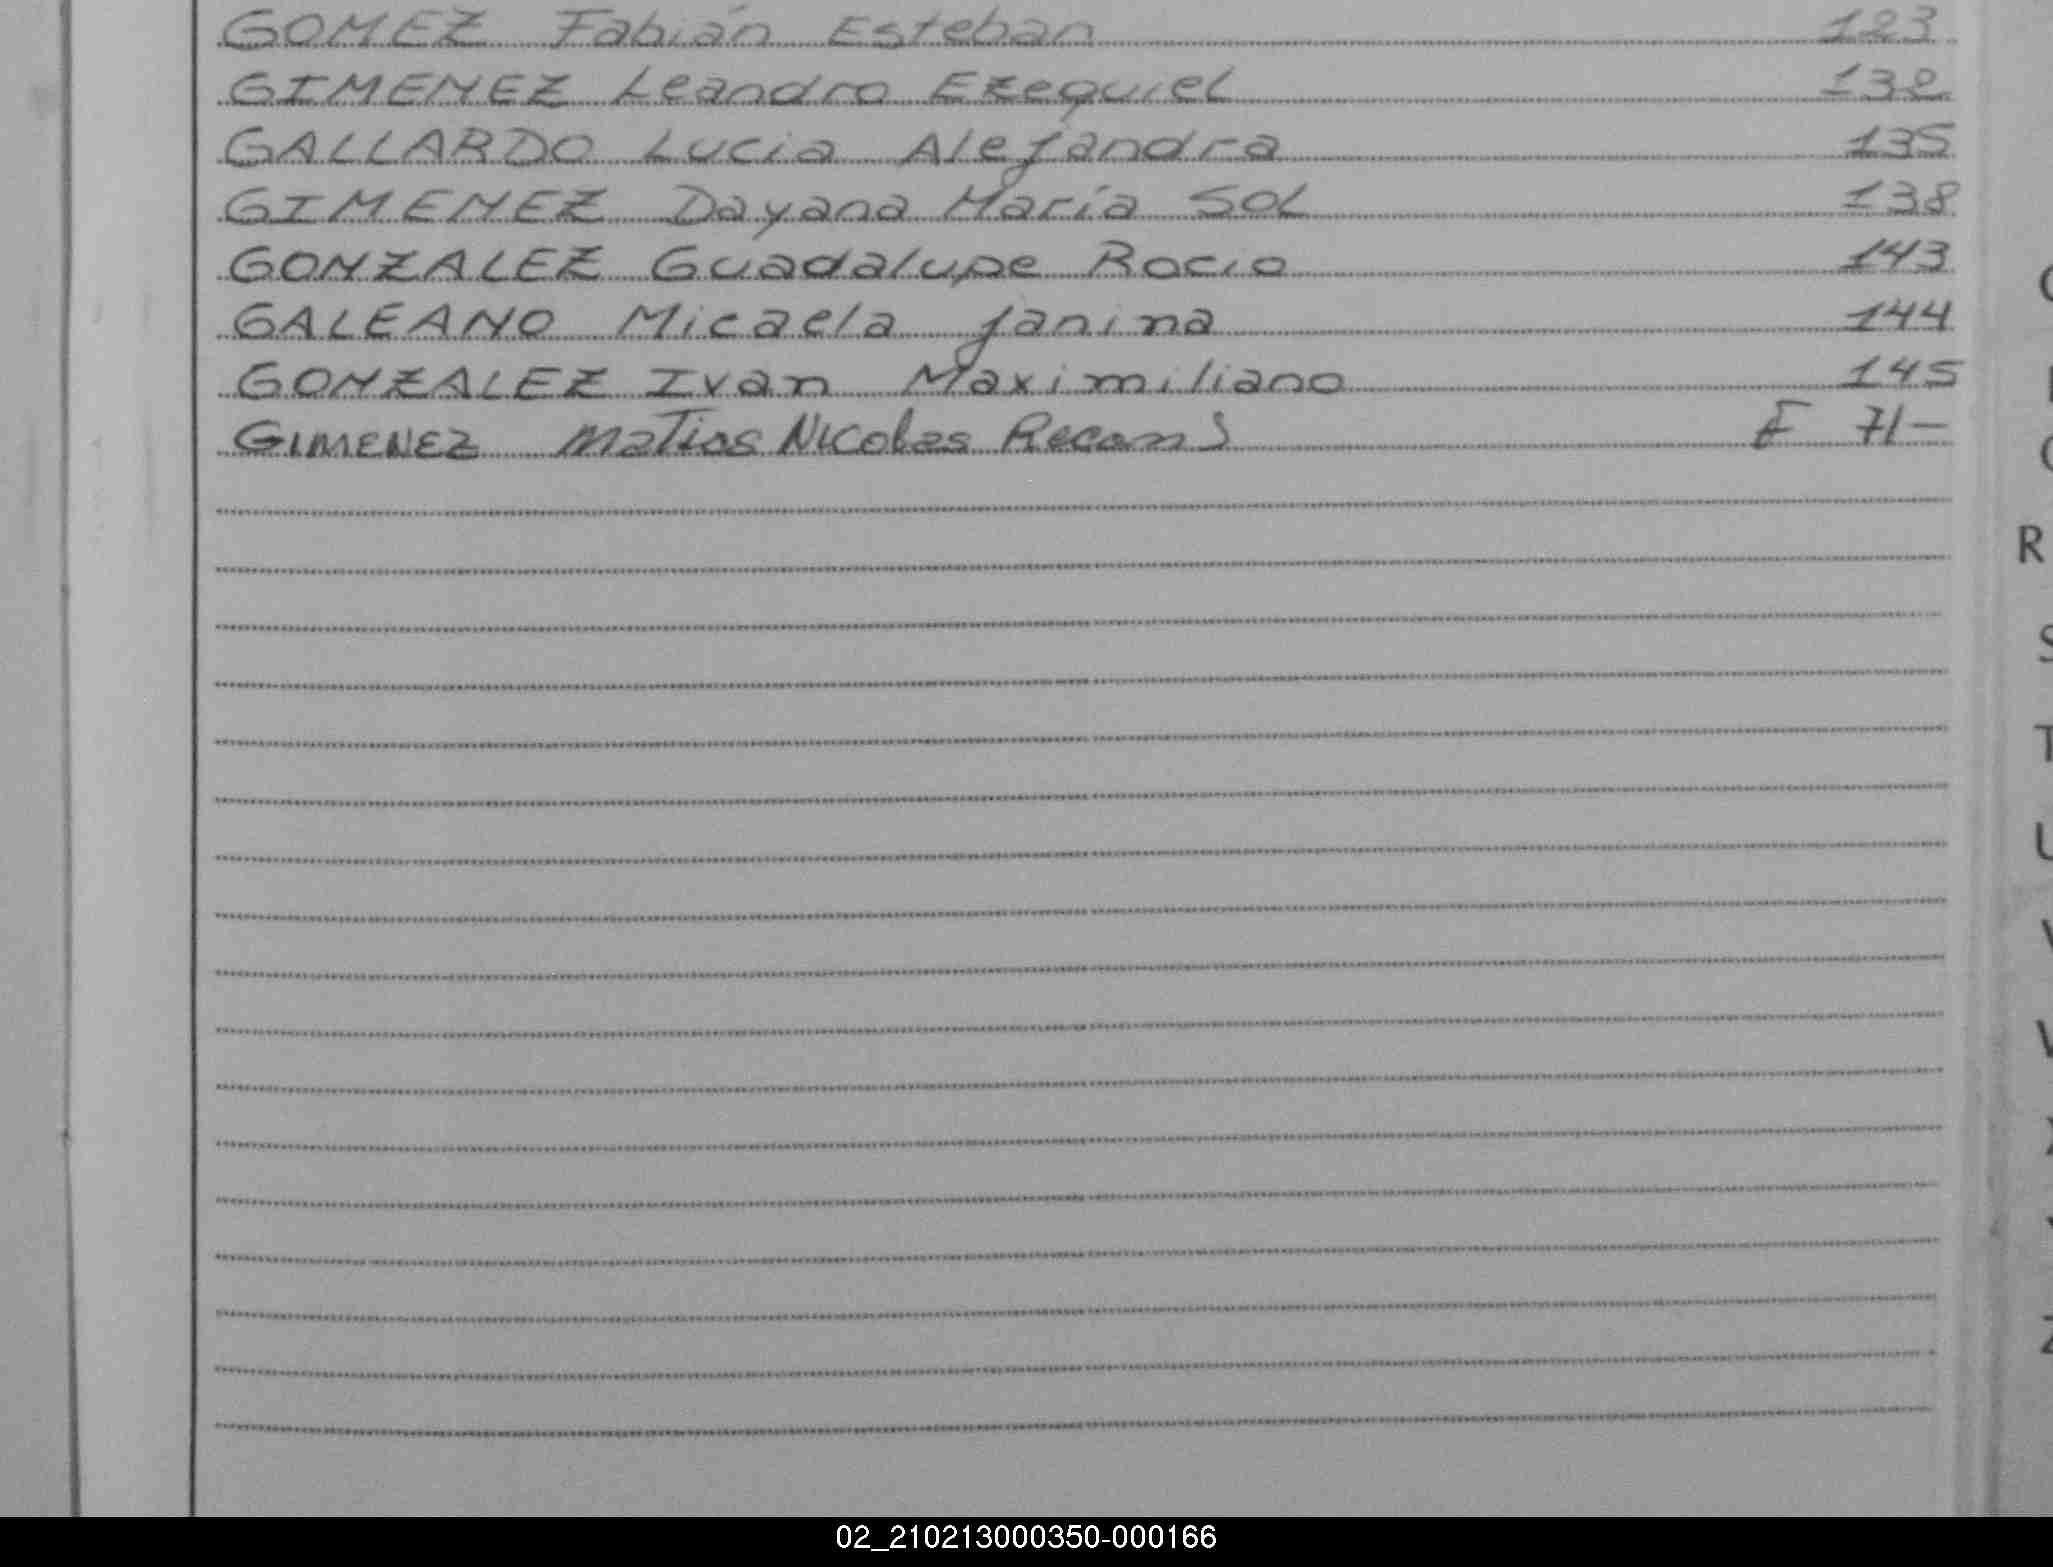 GOMEZ Fabián Esteban 123
GIMENEZ Leandro Ezequiel 132
GALLARDO Lucia Alejandra 135
GIMENEZ Dayana María SOL 138
GONZALEZ Guadalupe Rocio 143
GALEANO Micaela Janina 144
GONZALEZ Ivan Maximiliano 145
GIMENEZ Matias Nicolas F 71-
R
S
T
U
V
X
Z
02_210213000350-000166